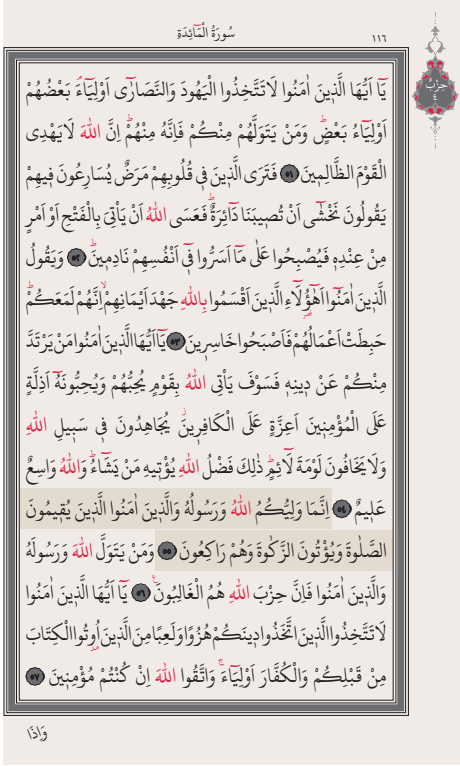 سُورَةُ الْمَائِدَةِ
١١٦
حِزْبْ
٤
يَٓا اَيُّهَا الَّذٖينَ اٰمَنُوا لَا تَتَّخِذُوا الْيَهُودَ وَالنَّصَارٰٓى اَوْلِيَٓاءَۘ بَعْضُهُمْ
اَوْلِيَٓاءُ بَعْضٍؕ وَمَنْ يَتَوَلَّهُمْ مِنْكُمْ فَاِنَّهُ مِنْهُمْؕ اِنَّ اللّٰهَ لَا يَهْدِى
الْقَوْمَ الظَّالِمٖينَ ﴿٥١﴾ فَتَرَى الَّذٖينَ فٖى قُلُوبِهِمْ مَرَضٌ يُسَارِعُونَ فٖيهِمْ
يَقُولُونَ نَخْشٰٓى اَنْ تُصٖيبَنَا دَٓائِرَةٌؕ فَعَسَى اللّٰهُ اَنْ يَاْتِىَ بِالْفَتْحِ اَوْ اَمْرٍ
مِنْ عِنْدِهٖ فَيُصْبِحُوا عَلٰى مَٓا اَسَرُّوا فٖٓى اَنْفُسِهِمْ نَادِمٖينَؕ ﴿٥٢﴾ وَيَقُولُ
الَّذٖينَ اٰمَنُٓوا اَهٰٓؤُلَٓاءِ الَّذٖينَ اَقْسَمُوا بِاللّٰهِ جَهْدَ اَيْمَانِهِمْۙ اِنَّهُمْ لَمَعَكُمْؕ
حَبِطَتْ اَعْمَالُهُمْ فَاَصْبَحُوا خَاسِرٖينَ ﴿٥٣﴾ يَٓا اَيُّهَا الَّذٖينَ اٰمَنُوا مَنْ يَرْتَدَّ
مِنْكُمْ عَنْ دٖينِهٖ فَسَوْفَ يَاْتِى اللّٰهُ بِقَوْمٍ يُحِبُّهُمْ وَيُحِبُّونَهُٓ اَذِلَّةٍ
عَلَى الْمُؤْمِنٖينَ اَعِزَّةٍ عَلَى الْكَافِرٖينَؗ يُجَاهِدُونَ فٖى سَبٖيلِ اللّٰهِ
وَلَا يَخَافُونَ لَوْمَةَ لَٓائِمٍؕ ذٰلِكَ فَضْلُ اللّٰهِ يُؤْتٖيهِ مَنْ يَشَٓاءُؕ وَاللّٰهُ وَاسِعٌ
عَلٖيمٌ ﴿٥٤﴾ اِنَّمَا وَلِيُّكُمُ اللّٰهُ وَرَسُولُهُ وَالَّذٖينَ اٰمَنُوا الَّذٖينَ يُقٖيمُونَ
الصَّلٰوةَ وَيُؤْتُونَ الزَّكٰوةَ وَهُمْ رَاكِعُونَ ﴿٥٥﴾ وَمَنْ يَتَوَلَّ اللّٰهَ وَرَسُولَهُ
وَالَّذٖينَ اٰمَنُوا فَاِنَّ حِزْبَ اللّٰهِ هُمُ الْغَالِبُونَ۟ ﴿٥٦﴾ يَٓا اَيُّهَا الَّذٖينَ اٰمَنُوا
لَا تَتَّخِذُوا الَّذٖينَ اتَّخَذُوا دٖينَكُمْ هُزُوًا وَلَعِبًا مِنَ الَّذٖينَ اُو۫تُوا الْكِتَابَ
مِنْ قَبْلِكُمْ وَالْكُفَّارَ اَوْلِيَٓاءَۚ وَاتَّقُوا اللّٰهَ اِنْ كُنْتُمْ مُؤْمِنٖينَ ﴿٥٧﴾
وَاِذَا